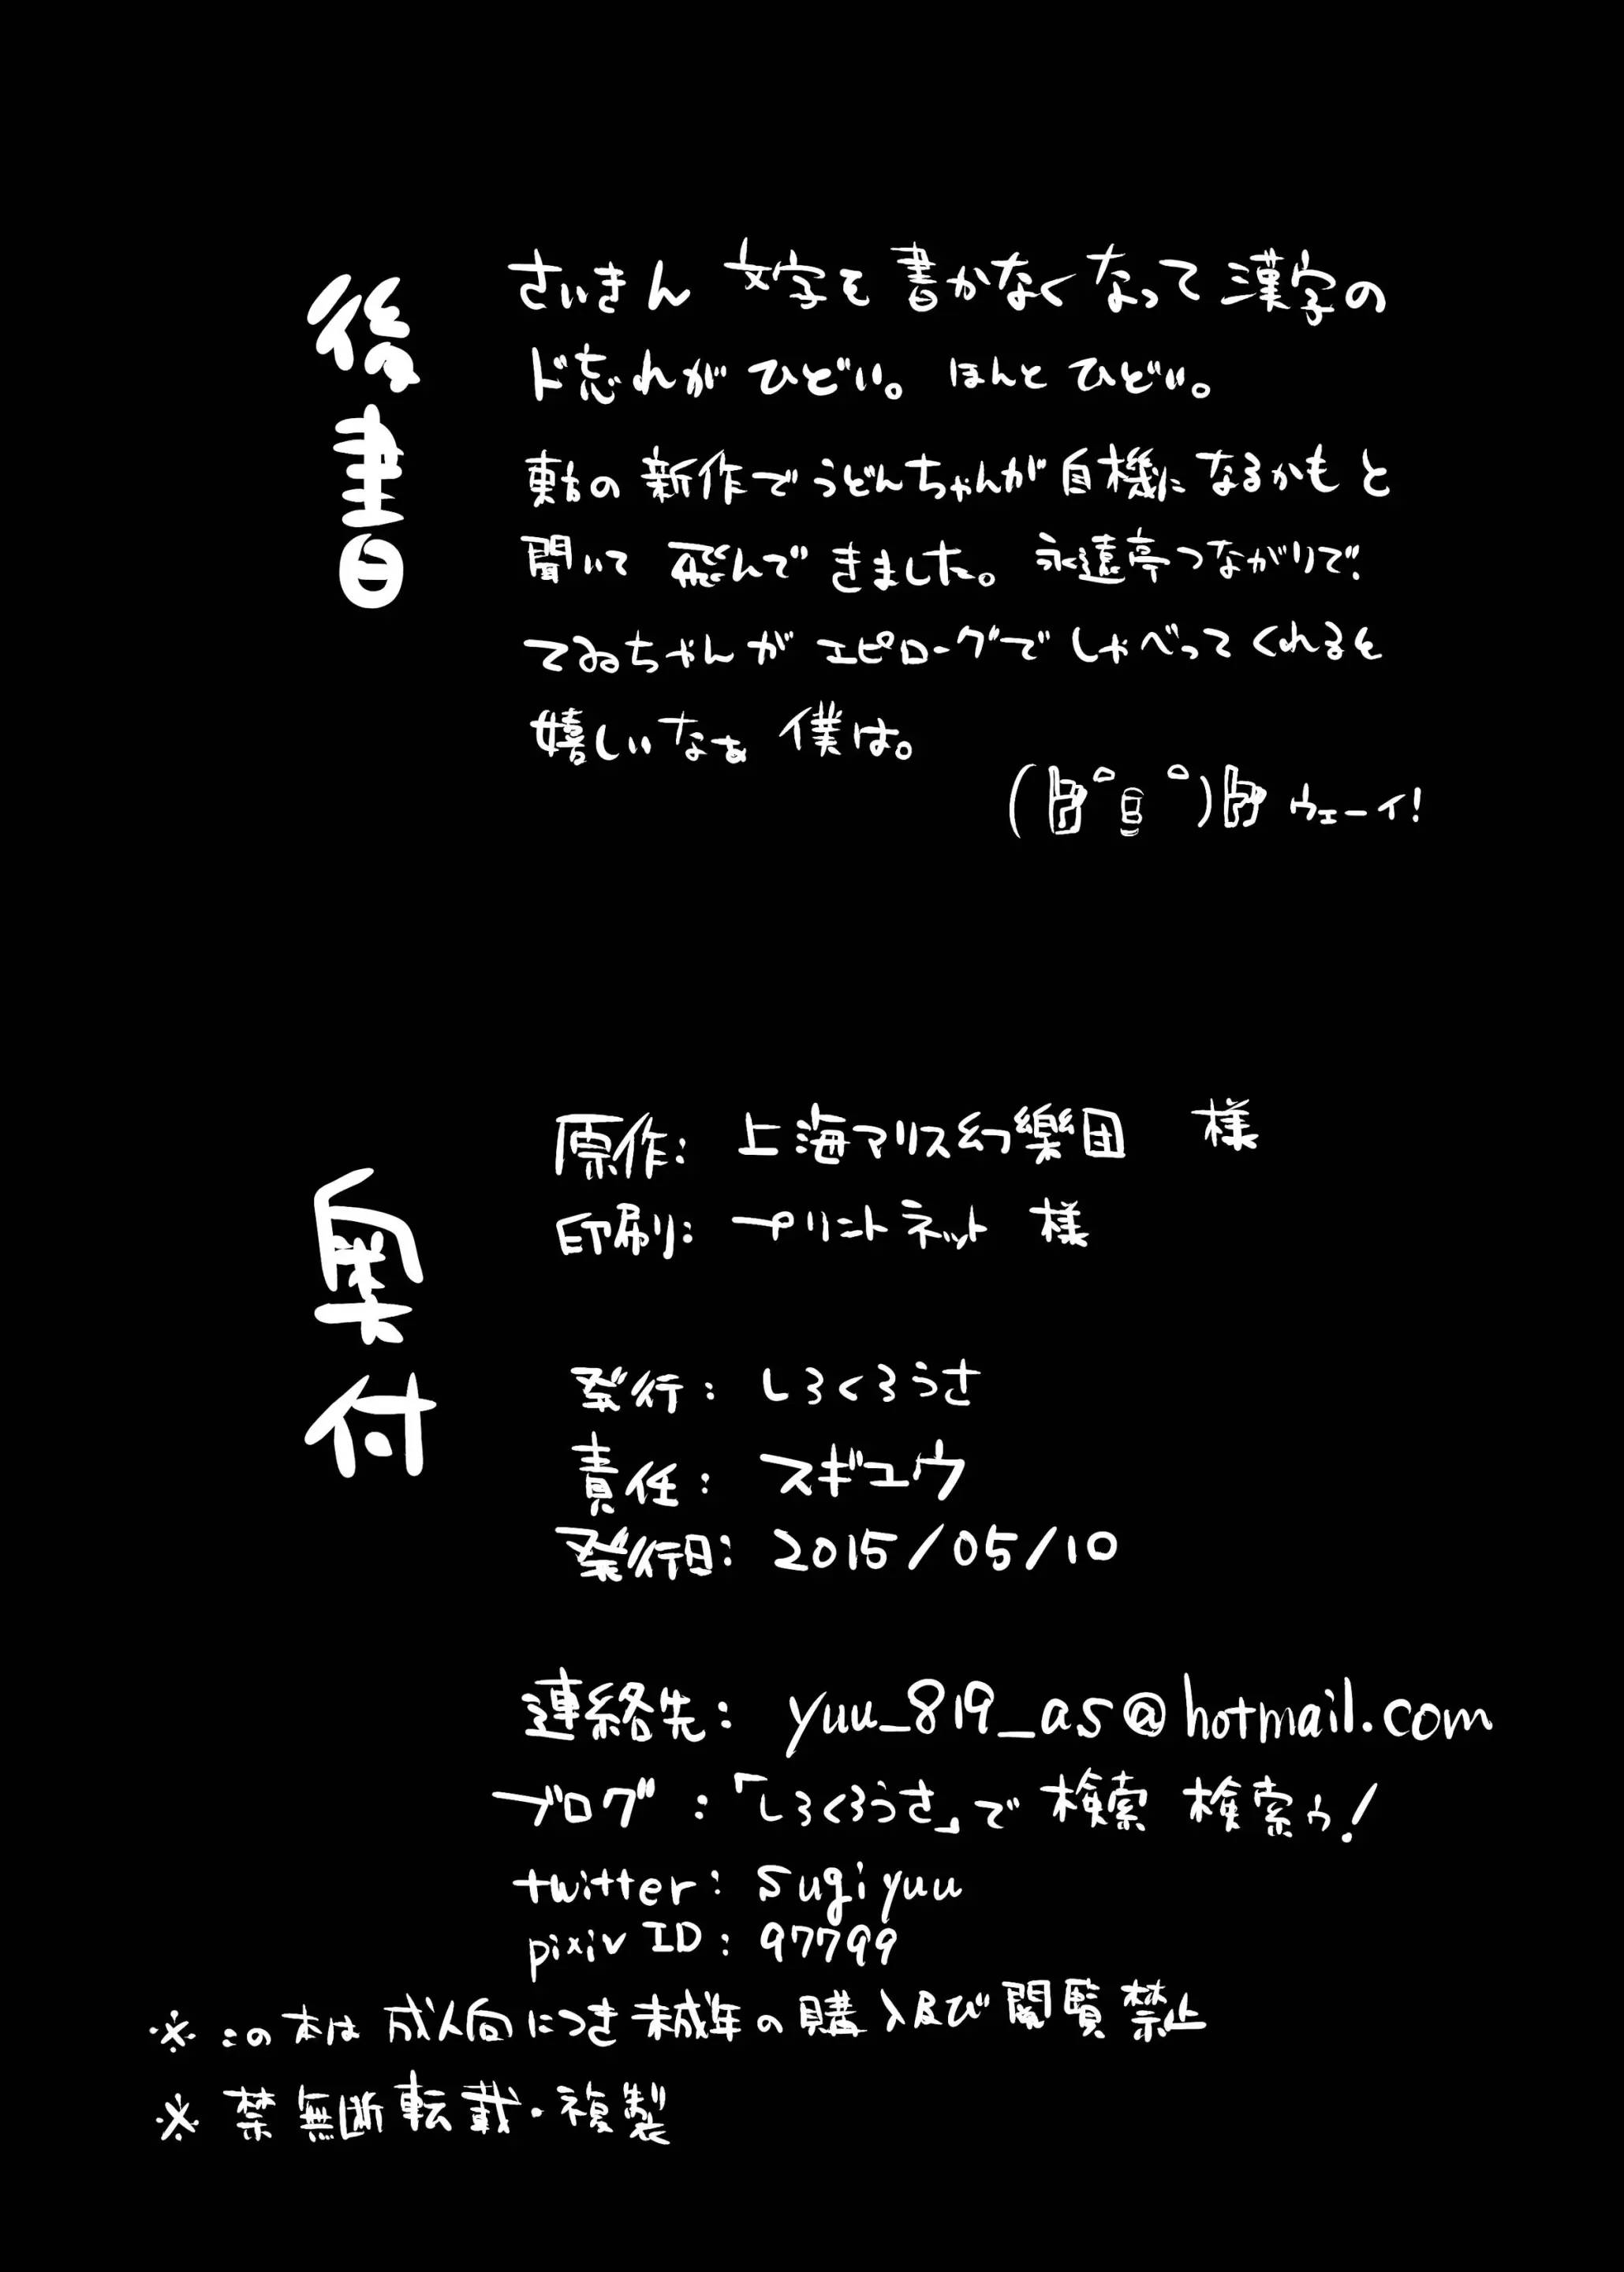 後書
さいきん 文字を書かなくなって漢字の
ド忘れがひどい。ほんとひどい。
東方の新作でうどんちゃんが自機になるかもと
聞いて飛んできました。永遠亭つながりで!
てゐちゃんがエピローグでしゃべってくれると
嬉しいなぁ僕は。
ウェーイ!
奥付
原作: 上海アリス幻樂団 様
印刷: プリントネット 様
発行: しろくろうさ
責任: スギユウ
発行日: 2015/05/10
連絡先: yuu_819_as@hotmail.com
ブログ:「しろくろうさ」で検索 検索ゥ!
twitter: sugiyuu
pixiv ID: 97799
※この本は成人向につき未成年の購入及び閲覧禁止
※禁無断転載・複製